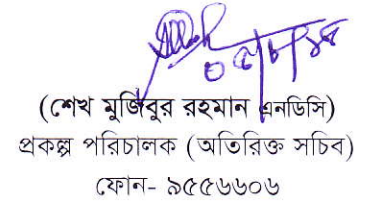 ০৫/৮/১৮
(শেখ মুজিবুর রহমান এনডিসি)
প্রকল্প পরিচালক (অতিরিক্ত সচিব)
ফোন- ৯৫৫৬৬০৬